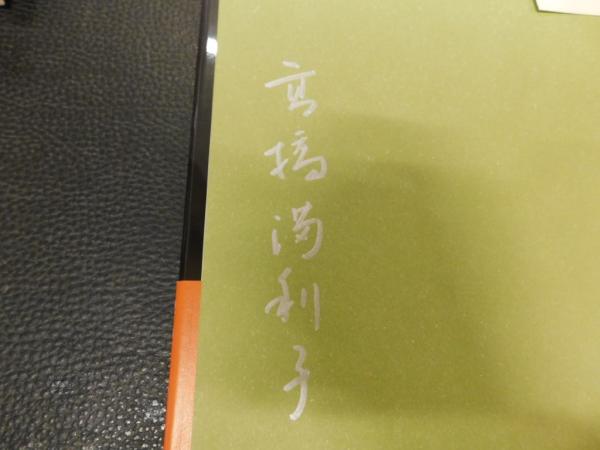 高橋満利子